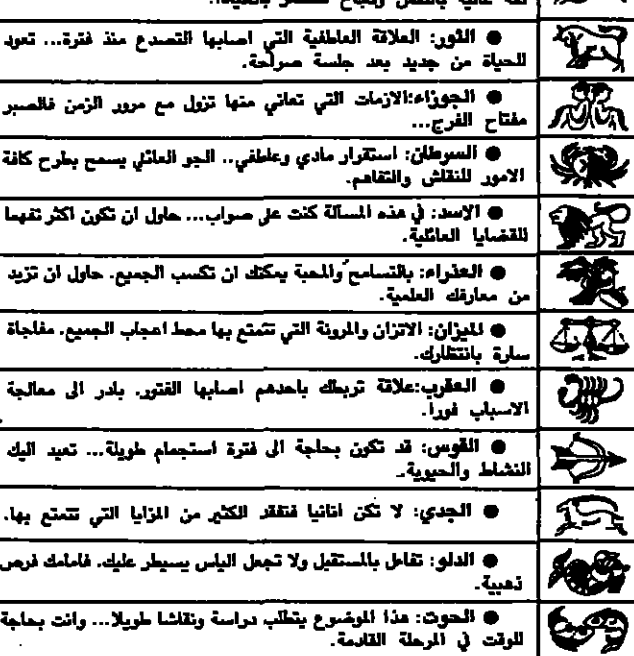 ثقة عالية بالنفس ونجاح مستمر بالحياة..
● الثور: العلاقة العاطفية التي اصابها التصدع منذ فترة... تعود
للحياة من جديد بعد جلسة صراحة.
● الجوزاء:الازمات التي تعاني منها تزول مع مرور الزمن فالصبر
مفتاح الفرج...
● السرطان: استقرار مادي وعاطفي.. الجو العائلي يسمح بطرح كافة
الامور للنقاش والتفاهم.
● الاسد: في هذه المسألة كنت على صواب... حاول ان تكون اكثر تفهما
للقضايا العائلية.
● العذراء: بالتسامح والمحبة يمكنك ان تكسب الجميع. حاول ان تزيد
من معارفك العلمية.
● الميزان: الاتزان والمرونة التي تتمتع بها محط اعجاب الجميع. مفاجاة
سارة بانتظارك.
● العقرب:علاقة تربطك باحدهم اصابها الفتور. بادر الى معالجة
الاسباب فورا.
● القوس: قد تكون بحاجة الى فترة استجمام طويلة... تعيد اليك
النشاط والحيوية.
● الجدي: لا تكن انانيا فتفقد الكثير من المزايا التي تتمتع بها.
● الدلو: تفاءل بالمستقبل ولا تجعل الياس يسيطر عليك. فامامك فرص
ذهبية.
● الحوت: هذا الموضوع يتطلب دراسة ونقاشا طويلا... وانت بحاجة
للوقت في المرحلة القادمة.